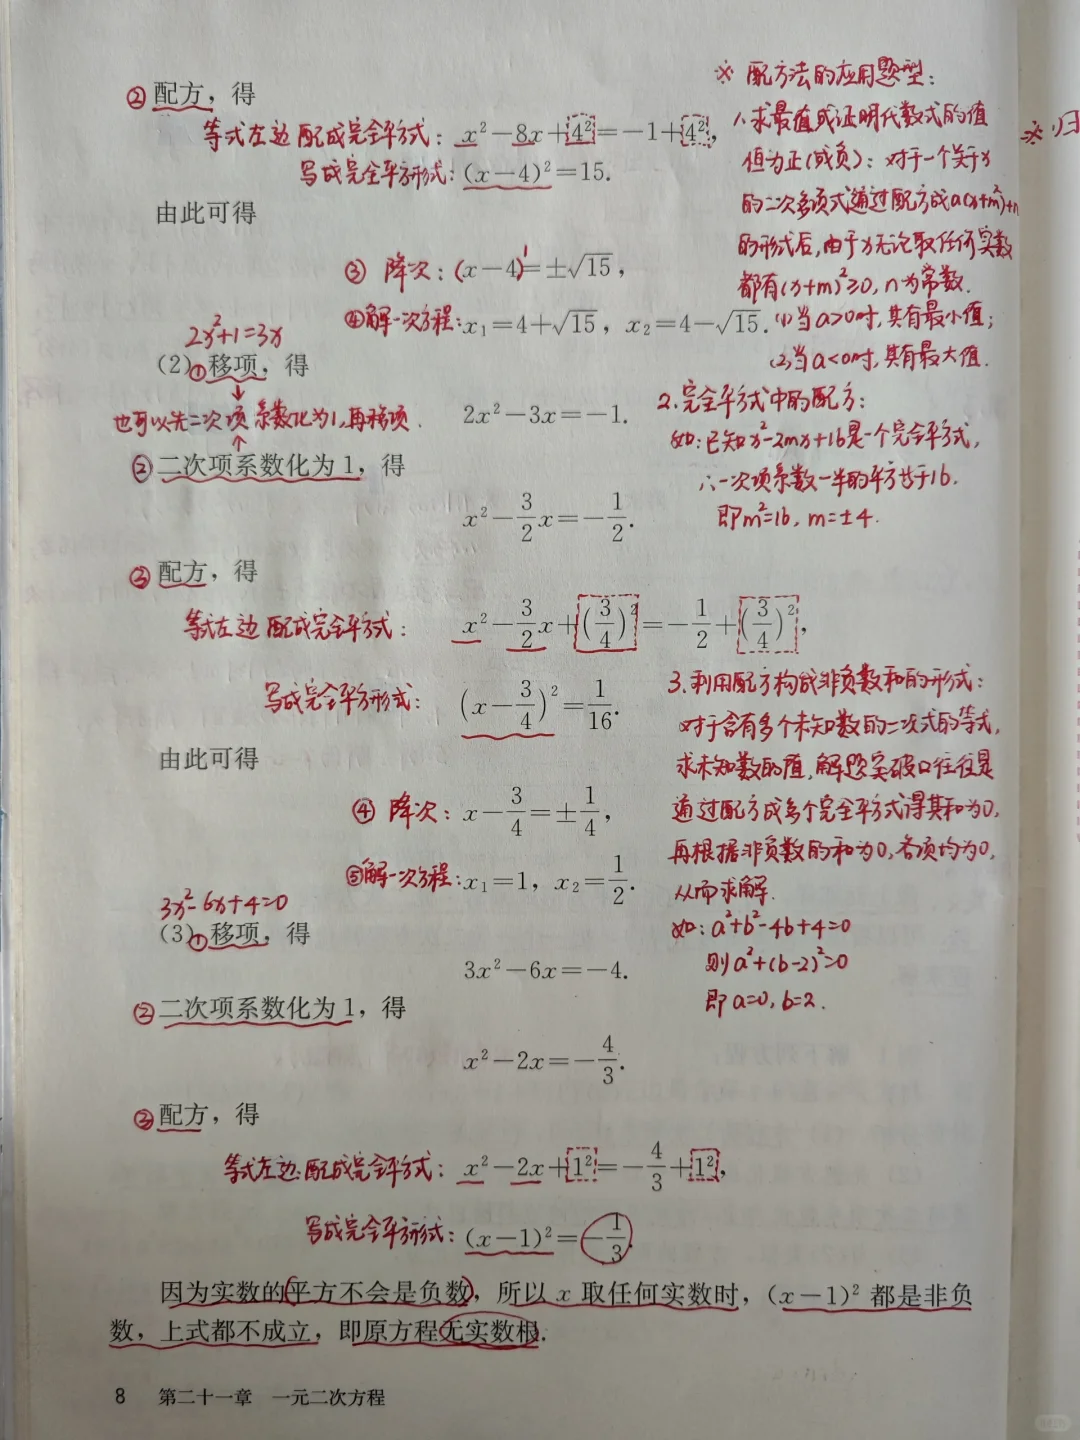 ② 配方，得
等式左边配成完全平方式：x²－8x＋4²＝－1＋4²，
写成完全平方形式：(x－4)²＝15.
由此可得
③ 降次：(x－4)¹＝±√15，
④解一次方程：x₁＝4＋√15，x₂＝4－√15.
2x²+1=3x
(2)①移项，得
也可以先二次项系数化为1,再移项.
2x²－3x＝－1.
②二次项系数化为1，得
x²－3/2x＝－1/2.
③配方，得
等式左边配成完全平方式：x²－3/2x＋(3/4)²＝－1/2＋(3/4)²，
写成完全平方形式：(x－3/4)²＝1/16.
由此可得
④ 降次：x－3/4＝±1/4，
⑤解一次方程：x₁＝1，x₂＝1/2.
3x²-6x+4=0
(3)①移项，得
3x²－6x＝－4.
②二次项系数化为1，得
x²－2x＝－4/3.
③配方，得
等式左边配成完全平方式：x²－2x＋1²＝－4/3＋1²，
写成完全平方形式：(x－1)²＝－1/3.
因为实数的平方不会是负数，所以 x 取任何实数时，(x－1)² 都是非负
数，上式都不成立，即原方程无实数根.
8 第二十一章 一元二次方程
※ 配方法的应用题型：
1.求最值或证明代数式的值
值为正(或负)：对于一个关于x
的二次多项式通过配方成a(x+m)²+n
的形式后,由于x无论取任何实数
都有(x+m)²≥0,n为常数.
(1)当a>0时,其有最小值；
(2)当a<0时,其有最大值.
2.完全平方式中的配方：
如:已知x²-2mx+16是一个完全平方式,
∴一次项系数一半的平方等于16.
即m²=16, m=±4.
3.利用配方构成非负数和的形式：
对于含有多个未知数的二次式的等式,
求未知数的值,解题突破口往往是
通过配方成多个完全平方式得其和为0,
再根据非负数的和为0,各项均为0,
从而求解.
如:a²+b²-4b+4=0
则a²+(b-2)²=0
即a=0,b=2.
※归